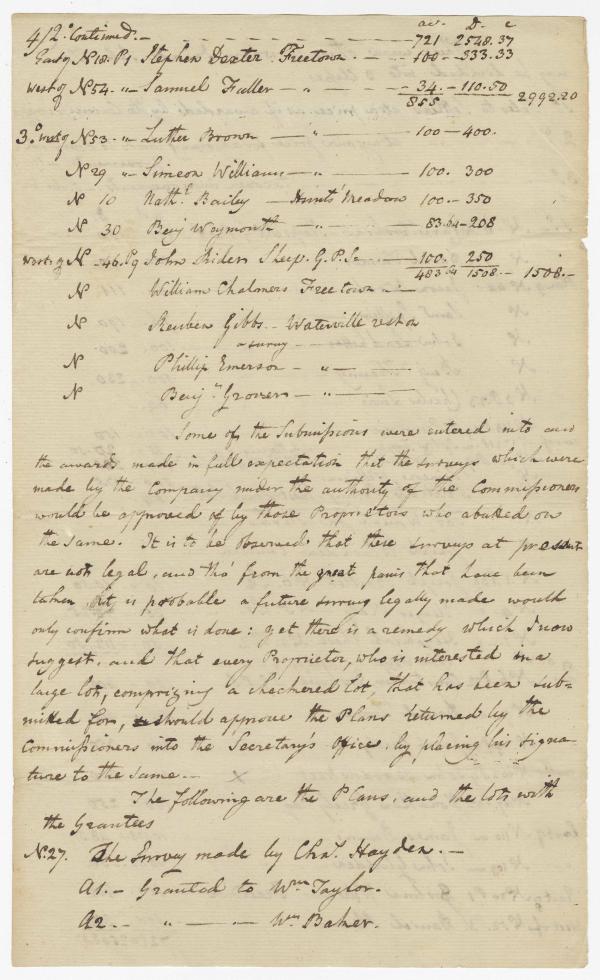 ac. D. c
4/2.° Continued. — 721 2548.37
East of N18. P1 Stephen Dexter Freetown. — 100 — 333.33
West of N54. " Samuel Fuller — " — 34. — 110.50
855 2992.20
3.° West of N53. " Luther Brown — " — 100 — 400.
N 29 " Simeon Williams — 100. 300
N 10 Nath.l Bailey — Hunts' Meadow 100. — 350
N 30 Benj Waymouth — " — 83.64 — 208
West of N -46. P9 John Rider Sheep. G. P. — 100. 250
483 64 1508. — 1508. —
N William Chalmers Freetown —
N Reuben Gibbs — Waterville rest on
a survey —
N Phillip Emerson — " —
N Benj.n Grover — " —
Some of the Submissions were entered into and
the awards made in full expectation that the surveys which were
made by the Company under the authority of the Commissioners
would be approved of by those Proprietors who abutted on
the same. It is to be observed that these surveys at present
are not legal, and tho' from the great pains that have been
taken it is probable a future survey legally made would
only confirm what is done: yet there is a remedy which I now
suggest, and that every Proprietor, who is interested in a
large lot, comprizing a checkered lot, that has been sub=
mitted for, should approve the Plans returned by the
Commissioners into the Secretary's Office, by placing his signa-
ture to the same. — x
The following are the Plans, and the lots with
the Grantees
No. 27. The Survey made by Cha.s Hayden. —
A1. — Granted to Wm Taylor.
A2. — " — — Wm Baker.